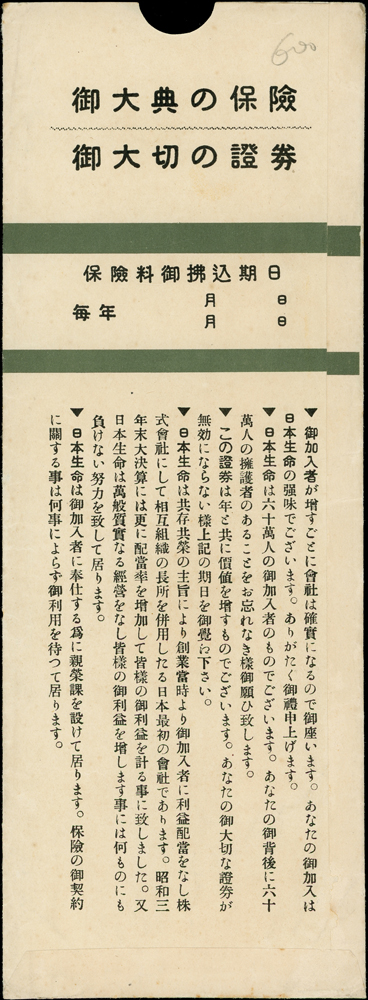 600
御大典の保險
御大切の證券
保險料御拂込期日
每年
月 日
月 日
▼御加入者が增すごとに會社は確實になるので御座います。あなたの御加入は
日本生命の强味でございます。ありがたく御禮申上げます。
▼日本生命は六十萬人の御加入者のものでございます。あなたの御背後に六十
萬人の擁護者のあることをお忘れなき樣御願ひ致します。
▼この證券は年と共に價値を增すものでございます。あなたの御大切な證券が
無効にならない樣上記の期日を御覺え下さい。
▼日本生命は共存共榮の主旨により創業當時より御加入者に利益配當をなし株
式會社にして相互組織の長所を併用したる日本最初の會社であります。昭和三
年末大決算には更に配當率を增加して皆樣の御利益を計る事に致しました。又
日本生命は萬般質實なる經營をなし皆樣の御利益を增します事には何ものにも
負けない努力を致して居ります。
▼日本生命は御加入者に奉仕する爲に親榮課を設けて居ります。保險の御契約
に關する事は何事によらず御利用を待つて居ります。